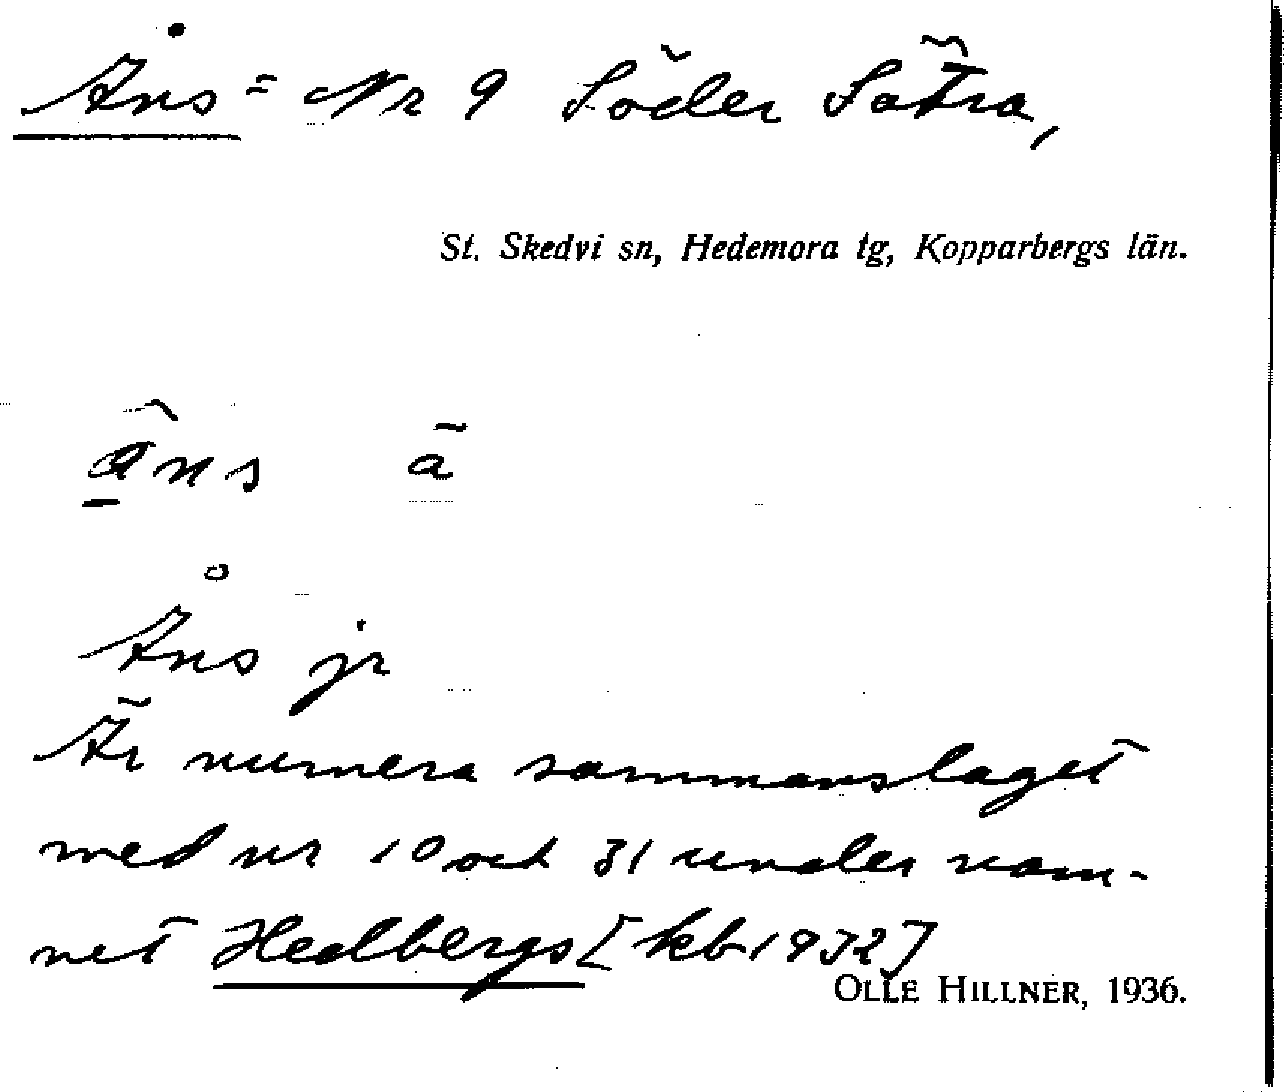 Åns = Nr 9 Söder Sätra,
St. Skedvi sn, Hedemora tg, Kopparbergs län.
åns ā
Åns jr
Är numera sammanslaget
med nr 10 och 31 under nam-
net Hedbergs [kb 1932]
OLLE HILLNER, 1936.